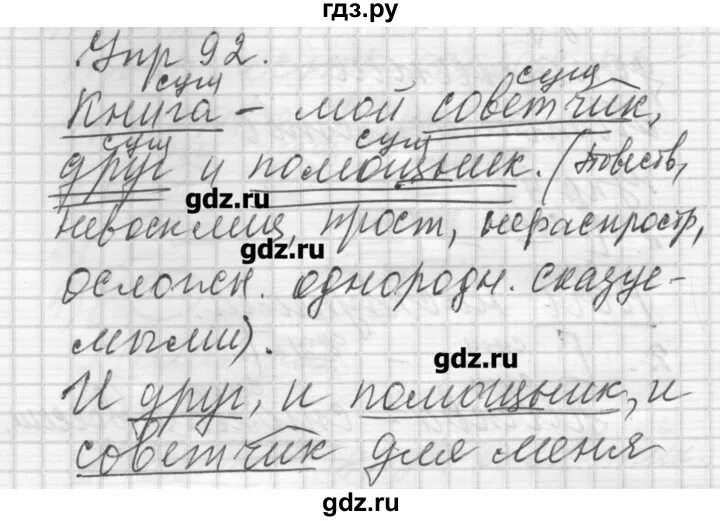 гдз.ру
Упр 92.
сущ сущ
Книга - мой советчик,
сущ сущ
друг и помощник. (Повеств,
gdz.ru
невосклиц, прост, нераспростр,
gdz.ru
ослотсн. однородн. сказуе-
мыми).
gdz.ru
И друг, и помощник, и
советчик для меня
gdz.ru